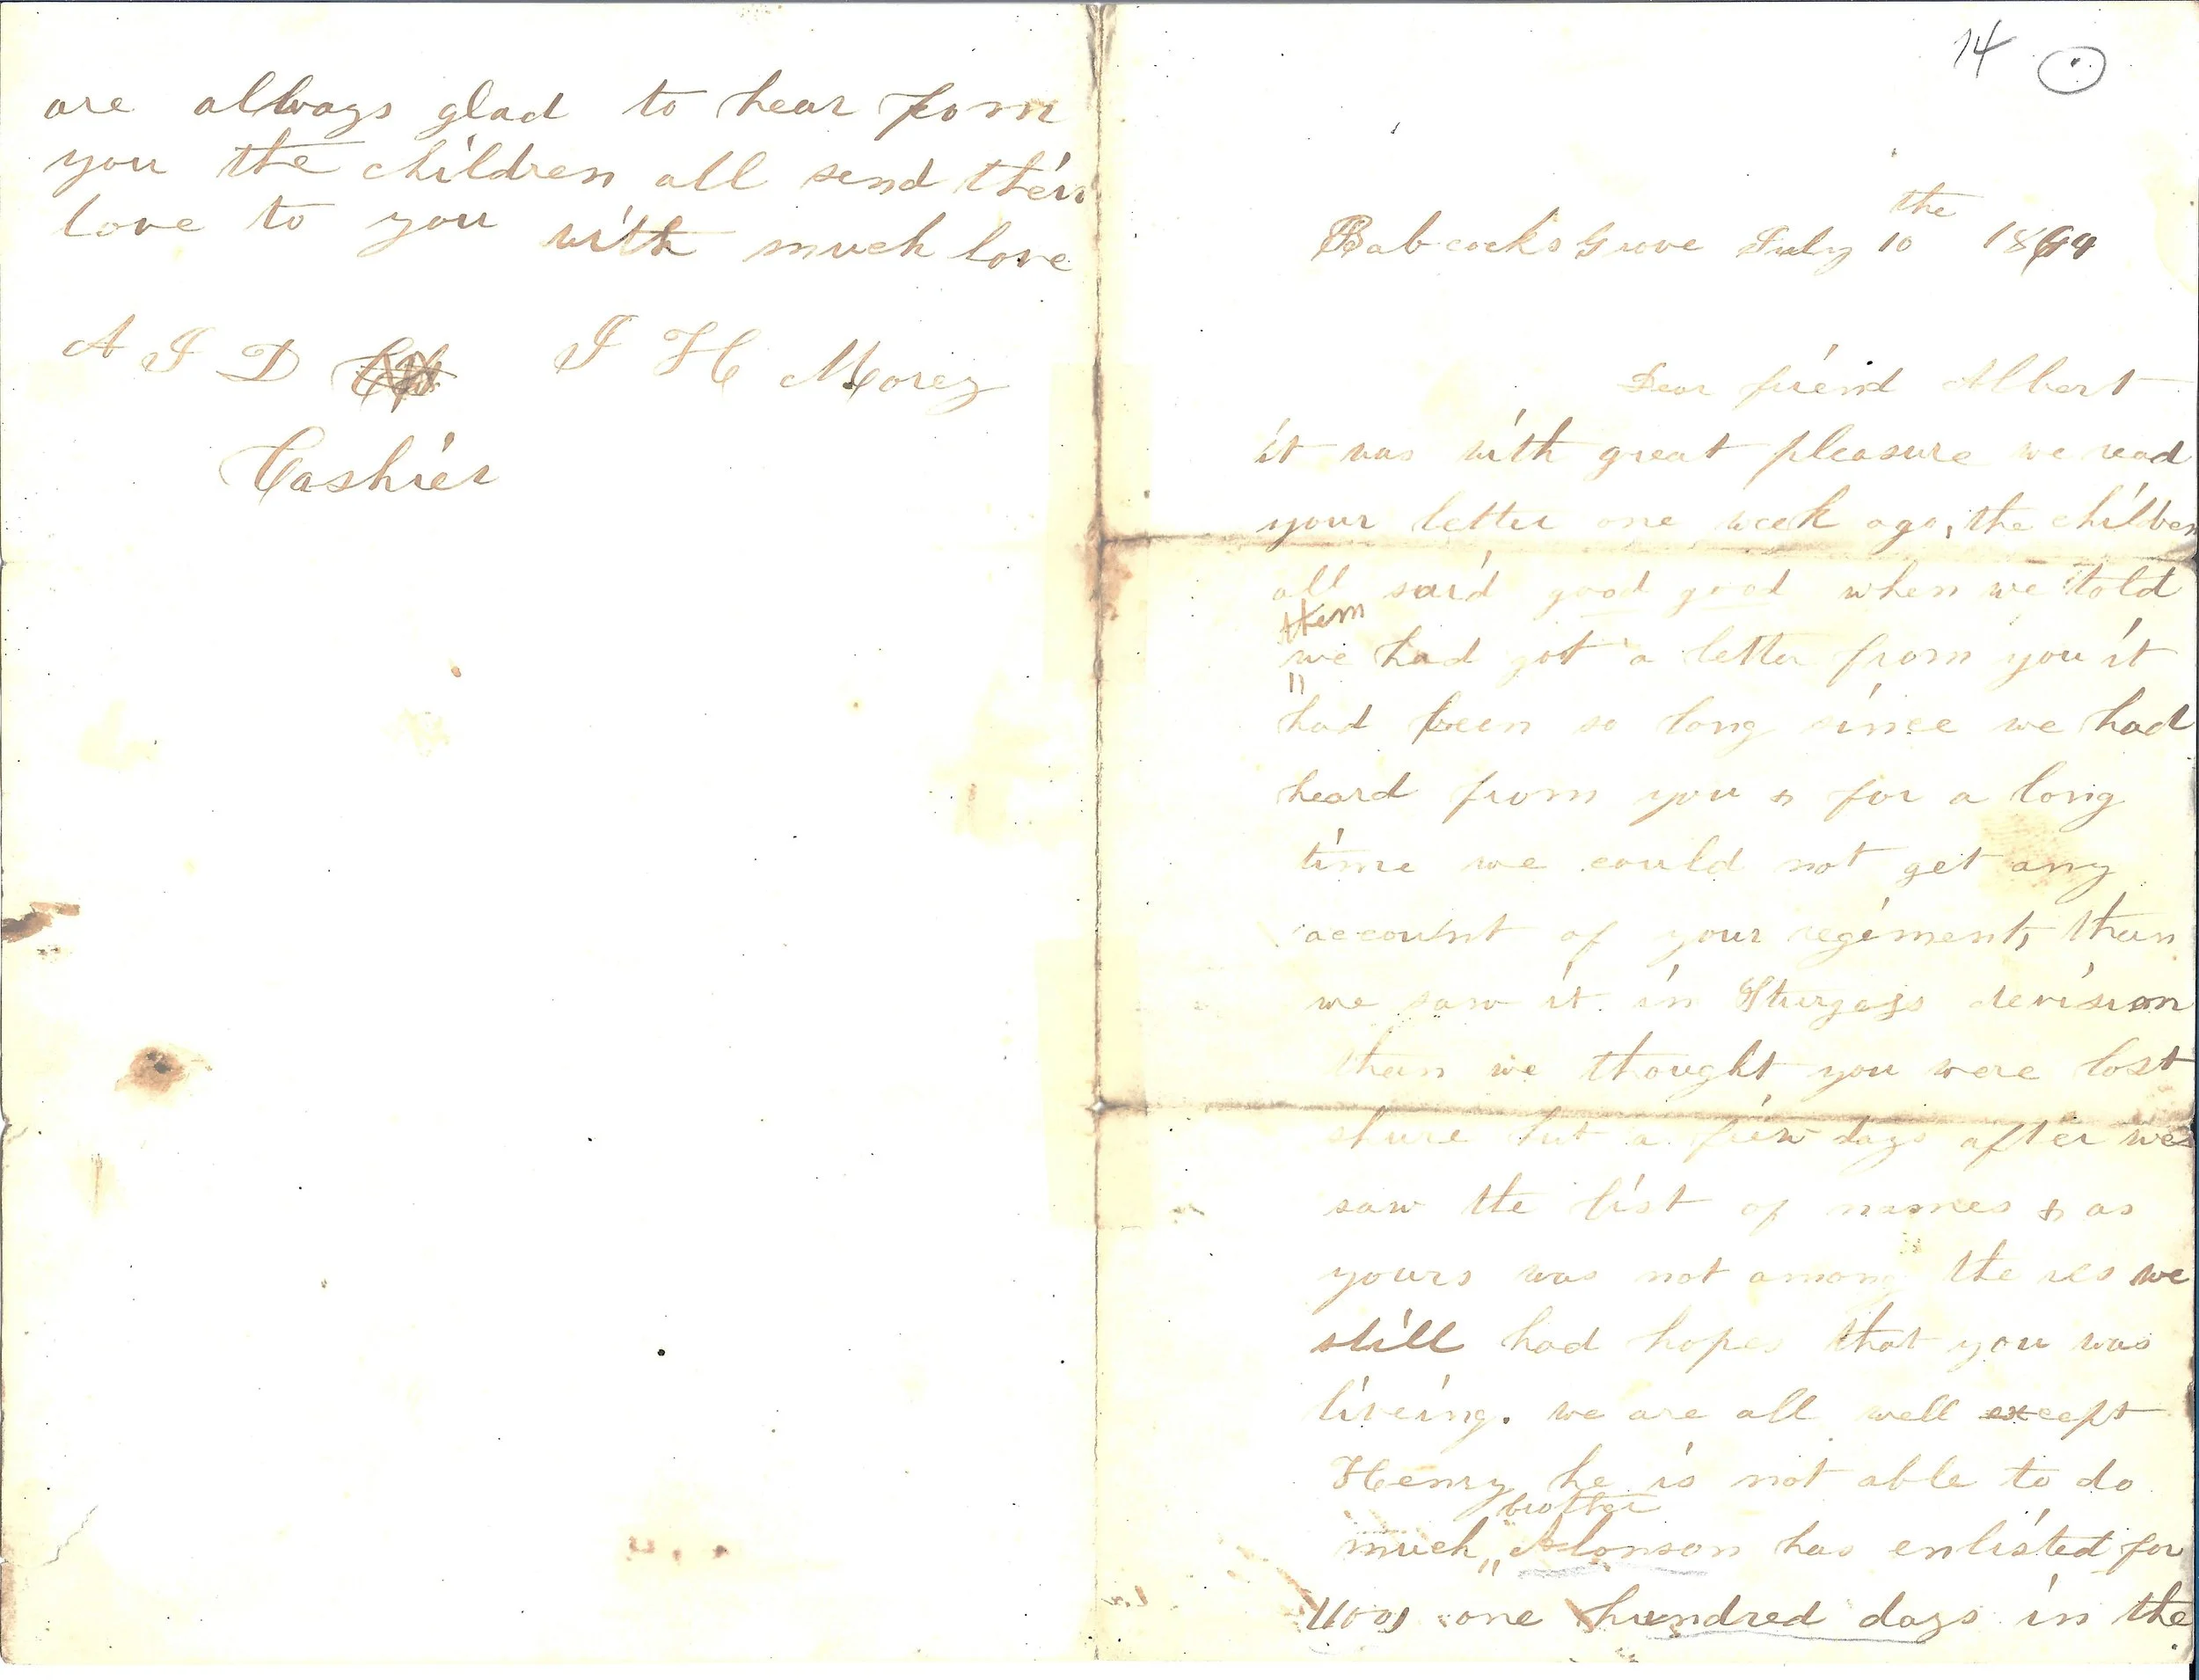 are allways glad to hear fom
you the children all send their
love to you with much love
A J D J H Morey
Cashier
14
the
Babcocks Grove July 10 1864
Dear friend Albert
it was with great pleasure we read
your letter one week ago, the children
all said good good when we told
them
we had got a letter from you it
"
had been so long since we had
heard from you & for a long
time we could not get any
account of your regiment, then
we saw it in Sturgajs devision
then we thought you were lost
shure but a few days after we
saw the list of names & as
yours was not among the res we
still had hopes that you was
liveing. we are all well except
Henry he is not able to do
brother
much " Alonson has enlisted for
"100" one hundred days in the